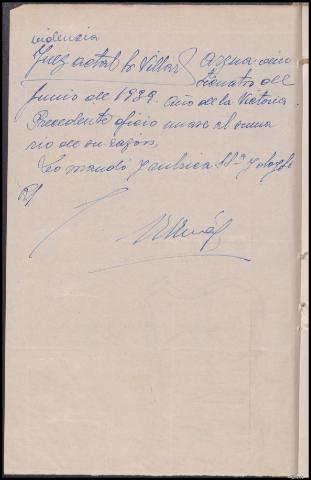 videncia
Juez actal Sr Villar } Arzua vein
ticuatro de
Junio de 1939. Año de la Victoria
Precedente oficio unase al suma
rio de su razon,
Lo mandó y rubrica Sª y doy fe